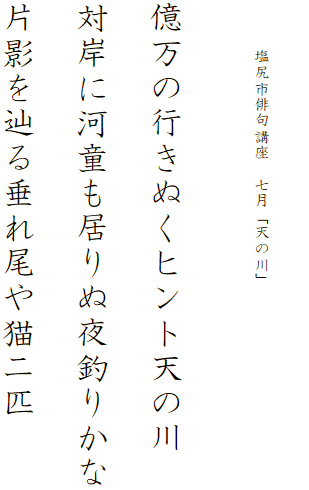 塩尻市俳句講座　七月「天の川」
億万の行きぬくヒント天の川
対岸に河童も居りぬ夜釣りかな
片影を辿る垂れ尾や猫二匹